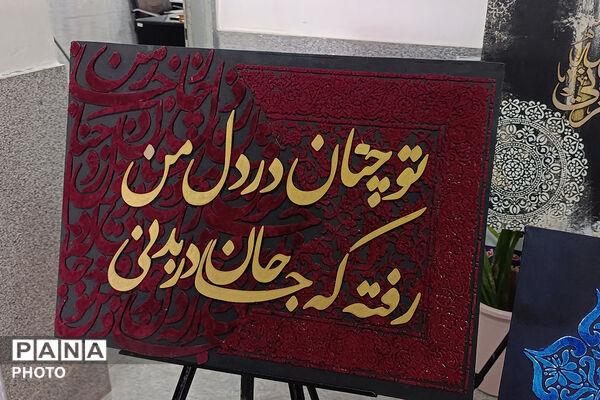 تو چنان در دل من
رفته که جان در بدنی
PANA
PHOTO